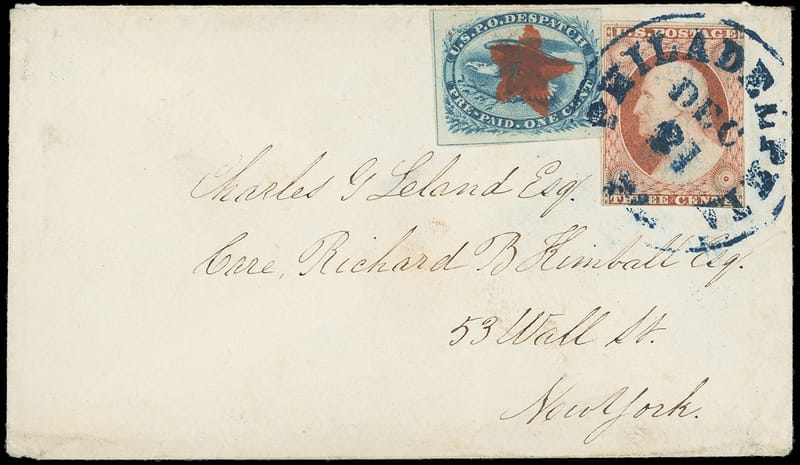 U.S.P.O. DESPATCH
PRE-PAID. ONE CENT
U.S. POSTAGE
THREE CENTS
PHILADELPHIA
DEC
Charles G Leland Esq.
Care, Richard B Kimball Esq.
53 Wall St.
New York.